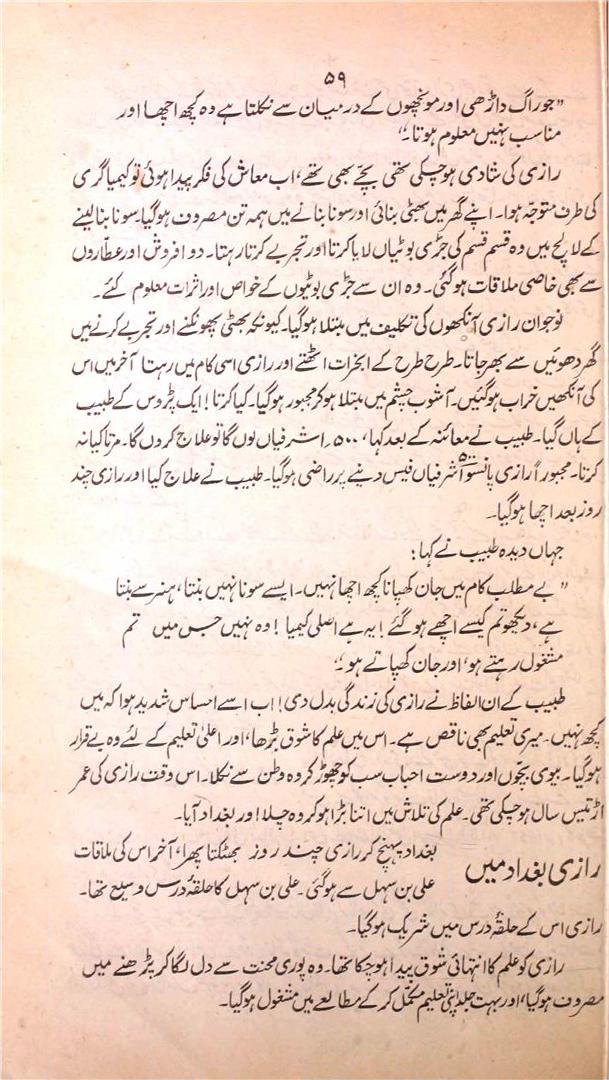 ۵۹
”جو راگ داڑھی اور مونچھوں کے درمیان سے نکلتا ہے وہ کچھ اچھا اور
مناسب نہیں معلوم ہوتا۔“
رازی کی شادی ہو چکی تھی بچّے بھی تھے، اب معاش کی فکر پیدا ہوئی تو کیمیا گری
کی طرف متوجّہ ہوا۔ اپنے گھر میں بھٹی بنائی اور سونا بنانے میں ہمہ تن مصروف ہو گیا۔ سونا بنا لینے
کے لالچ میں وہ قسم قسم کی جڑی بوٹیاں لایا کرتا اور تجربے کرتا رہتا۔ دوا فروش اور عطّاروں
سے بھی خاصی ملاقات ہو گئی۔ وہ ان سے جڑی بوٹیوں کے خواص اور اثرات معلوم کئے۔
نوجوان رازی آنکھوں کی تکلیف میں مبتلا ہو گیا۔ کیونکہ بھٹی پھونکنے اور تجربے کرنے میں
گھر دھوئیں سے بھر جاتا۔ طرح طرح کے ابخرات اٹھتے اور رازی اسی کام میں رہتا آخر میں اس
کی آنکھیں خراب ہو گئیں۔ آشوب چشم میں مبتلا ہو کر مجبور ہو گیا۔ کیا کرتا! ایک پڑوس کے طبیب
کے ہاں گیا۔ طبیب نے معائنہ کے بعد کہا، ۵۰۰ اشرفیاں لوں گا تو علاج کروں گا۔ مرتا کیا نہ
کرتا۔ مجبوراً رازی پانسو ۵۰۰ اشرفیاں فیس دینے پر راضی ہو گیا۔ طبیب نے علاج کیا اور رازی چند
روز بعد اچھا ہو گیا۔
جہاں دیدہ طبیب نے کہا:
”بے مطلب کام میں جان کھپانا کچھ اچھا نہیں۔ ایسے سونا نہیں بنتا، ہنر سے بنتا
ہے، دیکھو تم کیسے اچھے ہو گئے! یہ ہے اصلی کیمیا! وہ نہیں جس میں تم
مشغول رہتے ہو، اور جان کھپاتے ہو۔“
طبیب کے ان الفاظ نے رازی کی زندگی بدل دی! اب اسے احساس شدید ہوا کہ میں
کچھ نہیں۔ میری تعلیم بھی ناقص ہے۔ اس میں علم کا شوق بڑھا، اور اعلیٰ تعلیم کے لئے وہ بے قرار
ہو گیا۔ بیوی بچّوں اور دوست احباب سب کو چھوڑ کر وہ وطن سے نکلا۔ اس وقف رازی کی عمر
اڑتیس سال ہو چکی تھی۔ علم کی تلاش میں اتنا بڑا ہو کر وہ چلا! اور بغداد آیا۔
رازی بغداد میں
بغداد پہنچ کر رازی چند روز بھٹکتا پھرا، آخر اس کی ملاقات
علی بن سہل سے ہو گئی۔ علی بن سہل کا حلقۂ درس وسیع تھا۔
رازی اس کے حلقۂ درس میں شریک ہو گیا۔
رازی کو علم کا انتہائی شوق پیدا ہو چکا تھا۔ وہ پوری محنت سے دل لگا کر پڑھنے میں
مصروف ہو گیا، اور بہت جلد اپنی تعلیم مکمّل کر کے مطالعے میں مشغول ہو گیا۔